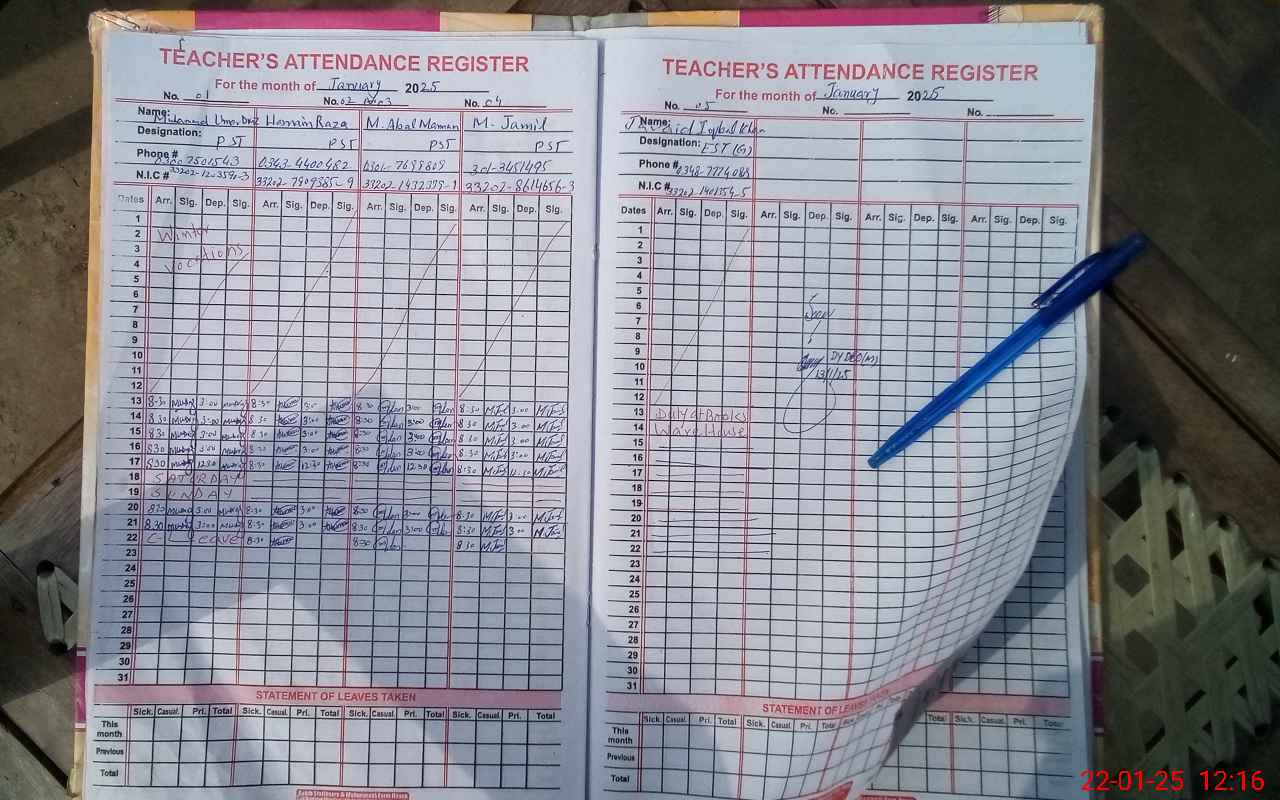 TEACHER'S ATTENDANCE REGISTER
For the month of January 2025
No. 01 No. 02 No. 03 No. 04
Name: Hasnin Raza M. Jamil
Designation: PST PST PST PST
Phone # 0343-4400482 0301-7698809 301-3451495
N.I.C # 33202-7909385-9 33202-1432379-1 33202-8614656-3
Dates Arr. Sig. Dep. Sig. Arr. Sig. Dep. Sig. Arr. Sig. Dep. Sig. Arr. Sig. Dep. Sig.
1
2 Winter
3
4 Vocations
5
6
7
8
9
10
11
12
13 8-30 3:00 8-30 3:0 8:30 3:00 8:30 3:00
14 8:30 3:00 8:30 3:00 8:30 3:00 8:30 3:00
15 8:30 3:00 8:30 3:00 8:30 3:00 8:30 3:00
16 8:30 3:00 8:30 3:00 8:30 3:00 8:30 3:00
17 8:30 12:30 8:30 12:30 8:30 12:30 8:30 12:30
18 SATURDAY
19 SUNDAY
20 8:30 3:00 8:30 3:00 8:30 3:00 8:30 3:00
21 8:30 3:00 8:30 3:00 8:30 3:00 8:30 3:00
22 C-Leave 8:30 8:30 8:30
23
24
25
26
27
28
29
30
31
STATEMENT OF LEAVES TAKEN
Sick. Casual. Pri. Total Sick. Casual. Pri. Total Sick. Casual. Pri. Total Sick. Casual. Pri. Total
This month
Previous
Total
TEACHER'S ATTENDANCE REGISTER
For the month of January 2025
No. 05 No. No.
Name: Iqbal Khan
Designation: EST (G)
Phone # 0348-7774088
N.I.C # 33202-1401354-5
Dates Arr. Sig. Dep. Sig. Arr. Sig. Dep. Sig. Arr. Sig. Dep. Sig. Arr. Sig. Dep. Sig.
1
2
3
4
5
6 Seen
7
8
9
10 DY DEO (M)
11 13/1/25
12
13 Duty at Books
14 Ware House
15
16
17
18
19
20
21
22
23
24
25
26
27
28
29
30
31
STATEMENT OF LEAVES TAKEN
Sick. Casual. Pri. Total Sick. Casual. Pri. Total Total Sick. Casual. Pri. Total
This month
Previous
Total
22-01-25 12:16